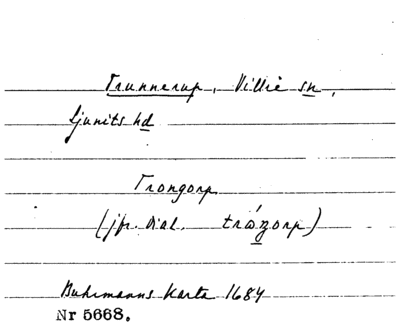 Trunnerup, Villie sn,
Ljunits hd
Trongorp
(jfr. dial. trózorp)
Buhrmanns Karta 1684
Nr 5668.